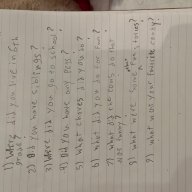 1) Where did you live in 6th
grade?
2) Did you have siblings?
3) Where did you go to school?
4) Did you have any pets?
5) What chores did you do?
6) What did you do for fun?
7) What did the cons do that
was funny?
8) What were some fun games?
9) What was your favorite candy?